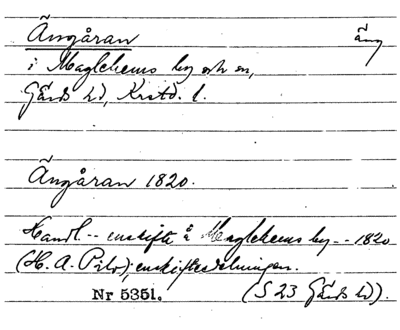 Ängåran äng
i Maglehems by och sn,
Gärds hd, Krstd. l.
Ängåran 1820.
Handl. -- enskifte å Maglehems by -- 1820
(H. A. Pihl); enskiftesdelningen.
Nr 5351. (S 23 Gärds hd).